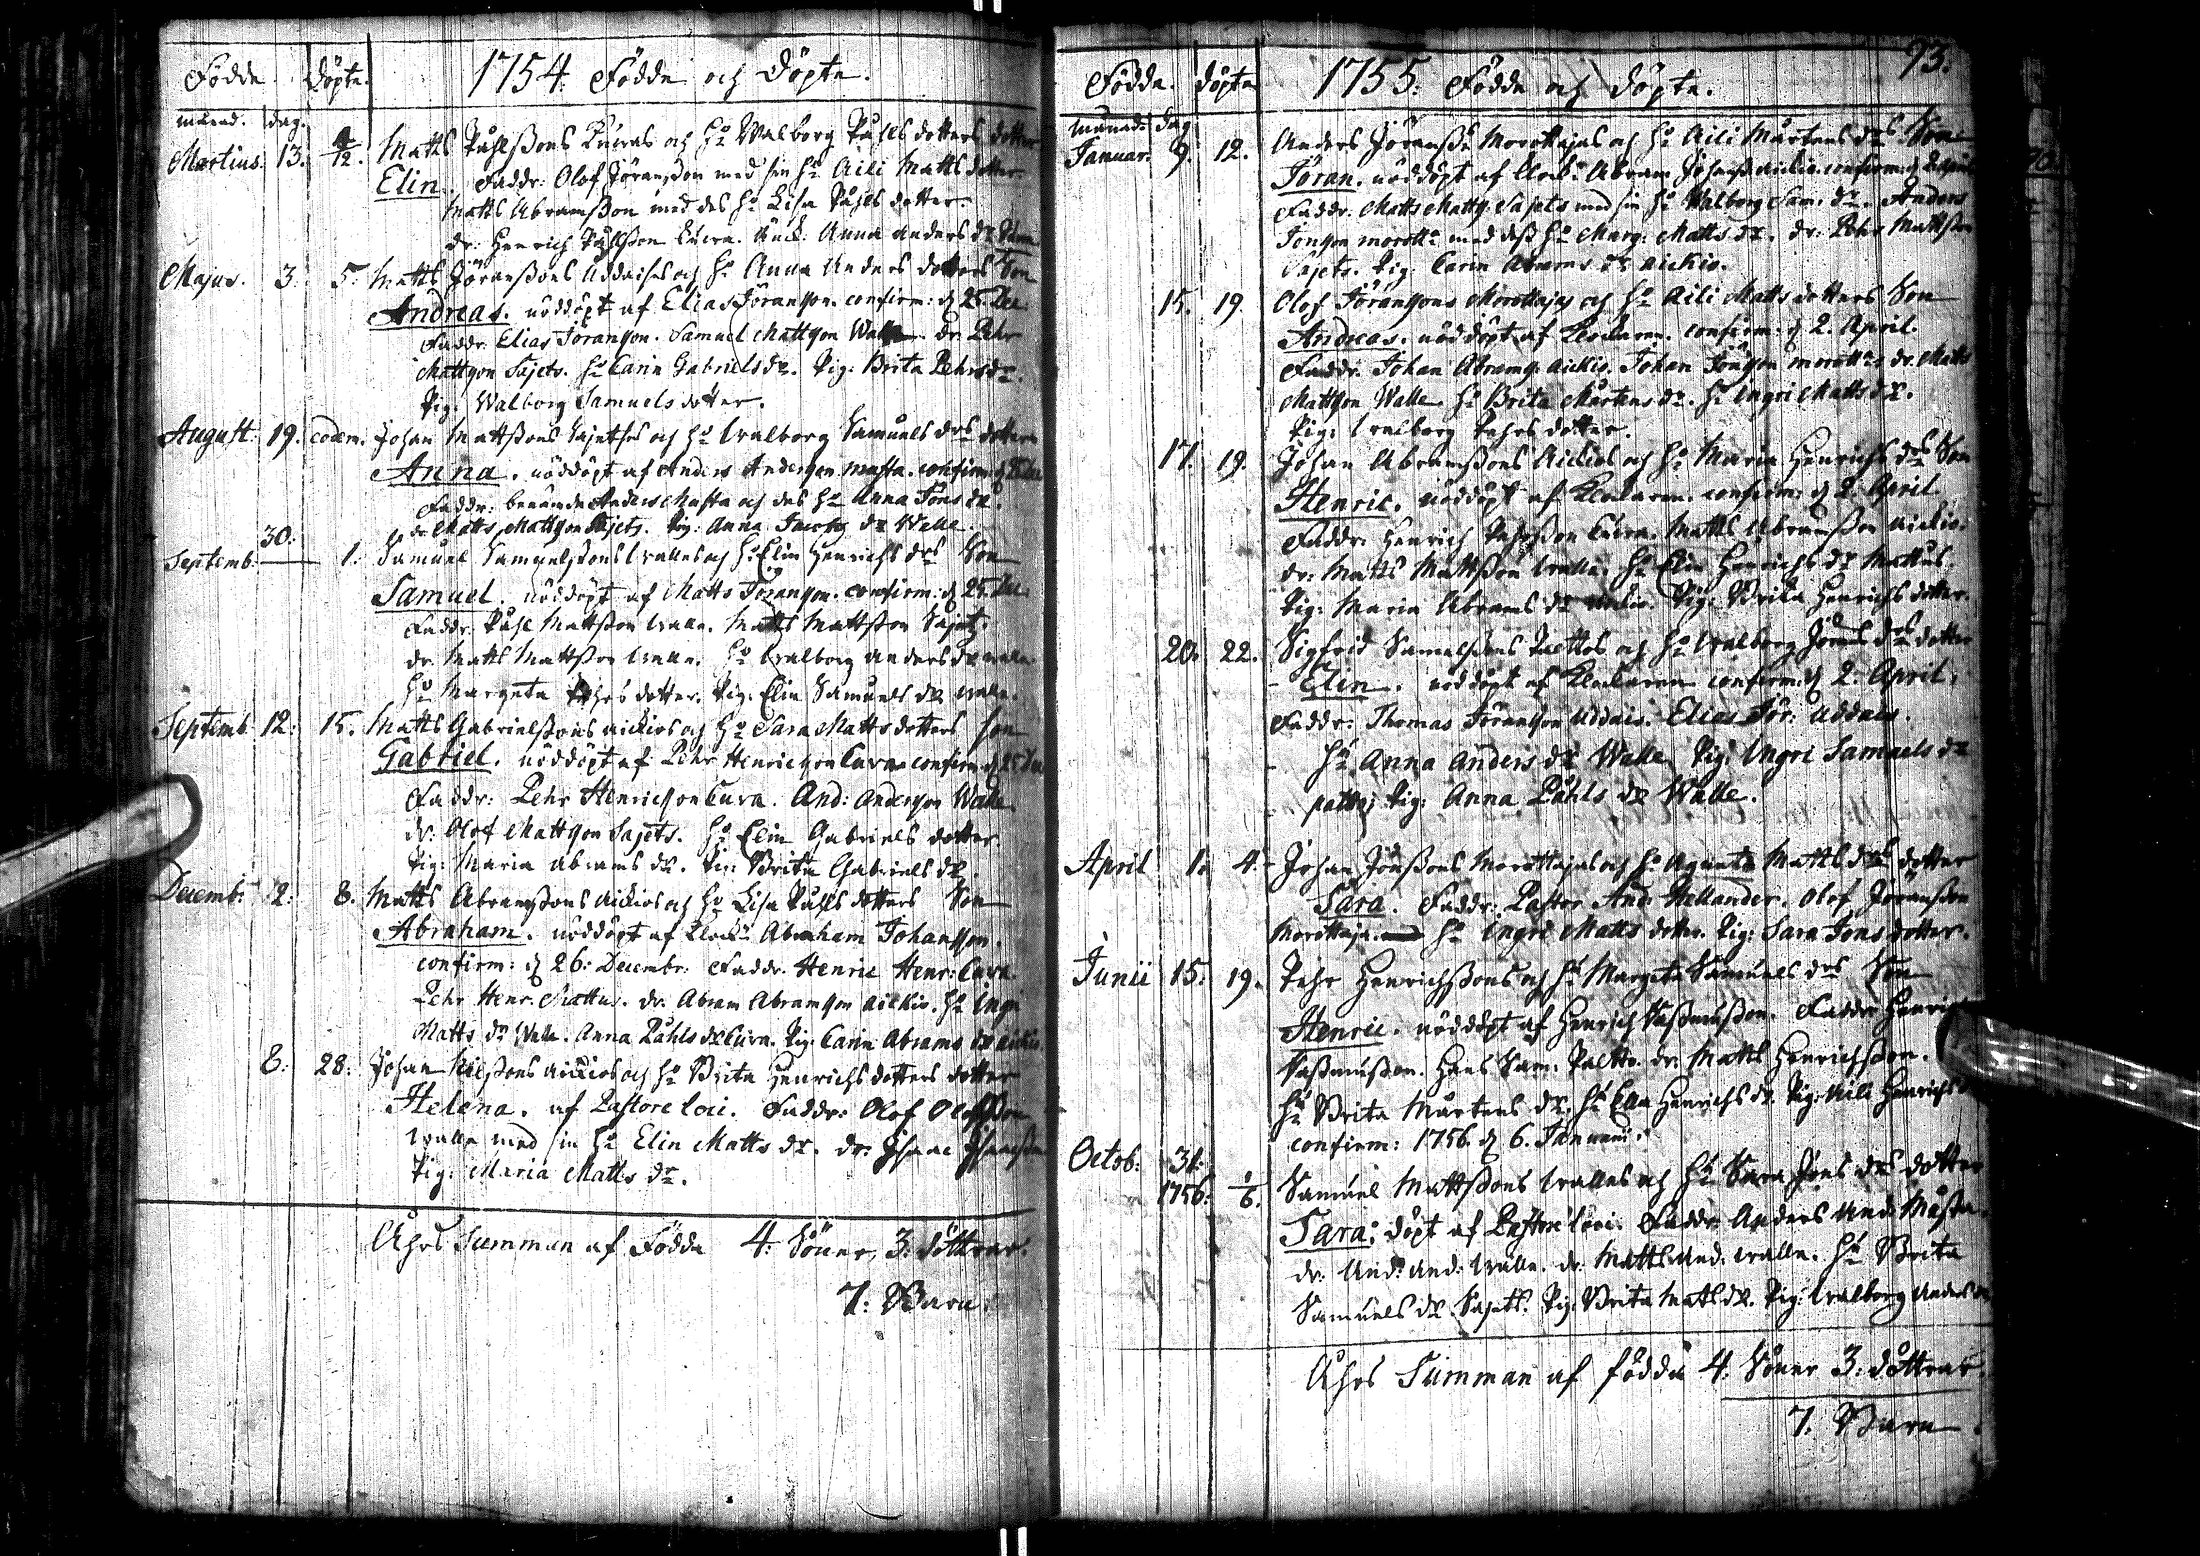 Födde. Döpte. 1754. Födde och Döpte.
månad. dag.
Martius. 13. 4/12. Matts Påhlßons Cuiras och Hu Walborg Påhls dotters dotter
Elin. Faddr: Olof Jöranßon med sin Hu Aili Matts dotter
Matts Abramßon med des Hu Lisa Påhls dotter.
dr: Henrich Påhlßon Cuira. Anna Anders dr
Majus. 3. 5. Matts Jöranßons Uddais och Hu Anna Anders dotters Son
Andreas. nöddöpt af Elias Jöranßon. confirm: d 25. Dec
Faddr: Elias Jöranson. Samuel Mattßon Walle dr. Pehr
Mattßon Sajets. Hu Carin Gabriels dr. Pig: Brita Pehrs dr.
Pig: Walborg Samuels dotter.
August: 19. eodem. Johan Mattßons Sajets och Hu Walborg Samuels drs dotter
Anna. nöddöpt af Anders Anderßon Musta. confirm: d
Faddr: benämde Anders Musta och des Hu Anna Jöns dr.
dr Matts Mattßon Sajets. Pig: Anna dr Walle.
30:
Septemb: 1. Samuel Samuelßons Walles och Hu Elin Henrichs drs Son
Samuel. nöddöpt af Matts Jöranßon. confirm: d 25. Dec.
Faddr: Påhl Mattßon Walle. Matts Mattßon Sajets.
dr. Matts Mattßon Walle. Hu Walborg Anders dr Walle
Hu Margeta Pehrs dotter. Pig: Elin Samuels dr Walle.
Septemb 12: 15. Matts Gabrielßons Aickios och Hu Sara Matts dotters Son
Gabriel. nöddöpt af Pehr Henricßon Cura confirm: d 25 Dec
Faddr: Pehr Henricßon Cura. And: Anderßon Walle
dr: Olof Mattßon Sajets. Hu Elin Gabriels dotter
Pig: Maria Abrams dr. Pig: Brita Gabriels dr.
Decemb: 2: 8. Matts Abramßons Aickios och Hu Lisa Påhls dotters Son
Abraham. nöddöpt af Klock: Abraham Johansson.
confirm: d 26: Decembr: Faddr. Henric Henr: Cura.
Pehr Henr. Mattus. dr. Abram Abramßon Aickio. Hu Ingri
Matts dr Walle. Anna Påhls dr Cura. Pig: Carin Abrams dr Aickio
8: 28: Johan Nilßons Aickios och Hu Brita Henrichs dotters dotter
Helena. af Pastore loci. Faddr: Olof Olofßon
Walle med sin Hu Elin Matts dr. dr: Isaac
Pig: Maria Matts dr.
Åhrs Summan af Födde 4: Söner, 3: döttrar.
7: Barn:
93.
Födde. döpte 1755: Födde och döpte.
Månad. dag
Januar. 9. 12. Anders Jöranßs Morottajas och Hu Aili Mårtens drs Son
Jöran. nöddöpt af Klock: Abram Johanß Aickio. confirm: d 2 April
Faddr: Matts Mattß. Sajets med sin Hu Walborg Sam: dr. Anders
Jonßon morott: med deß Hu Marg: Matts dr. dr: Pehr Mattßon
Sajets. Pig: Carin Abrams dr Aickio.
15. 19. Olof Jöranßons Morottajas och Hu Aili Matts dotters Son
Andreas. nöddöpt af Klockaren. confirm: d 2. April.
Faddr: Johan Abramß. Aickio. Johan Jönßon morott: dr. Matts
Mattßon Walle. Hu Brita Mårtens dr. Hu Ingri Matts dr.
Pig: Walborg Pehrs dotter.
17. 19. Johan Abramßons Aickios och Hu Maria Henrichs drs Son
Henric. nöddöpt af Klockaren. confirm: d 2: April
Faddr: Henrich Cuira. Matts Abramßon Aickio.
dr: Matts Mattßon Walle. Hu Elin Henrichs dr Mattus.
Pig: Maria Abrams dr Aickio. Pig: Brita Henrichs dotter.
20. 22. Sigfrid Samelßons Paltos och Hu Walborg Jörans drs dotter
Elin. nöddöpt af Klockaren confirm: d 2. April.
Faddr: Thomas Jöranßon Uddais. Elias Jör: Uddais.
Hu Anna Anders dr Walle. Pig: Ingri Samuels dr
Pig: Anna Påhls dr Walle.
April 1. 4. Johan Jönßons Morottajas och Hu Agneta Matts drs dotter
Sara. Faddr: Pastor And: Hellander. Olof Jöranßon
Morottaja. Hu Ingri Matts dotter. Pig: Sara Jöns dotter.
Junii 15. 19. Pehr Henrichßons och Hu Margeta Samuels drs Son
Henric. nöddöpt af Henrich Raßmußon. Faddr: Henrich
Raßmußon. Hans Sam: Paltto. dr: Matts Henrichßon.
Hu Brita Mårtens dr. Hu Elin Henrichs dr. Pig: Aili Henrichs
confirm: 1756. d 6. Januarii.
Octob: 31:
1756: 1/6. Samuel Mattßons Walles och Hu Sara Jöns drs dotter
Sara: döpt af Pastore loci. Faddr: Anders And: Musta.
dr: And: And: Walle. dr. Matts And: Walle. Hu Brita
Samuels dr. Sajets. Pig: Brita Mats dr. Pig: Walborg Anders dr
Åhrs Summan af födda 4: Söner 3: döttrar.
7. Barn.